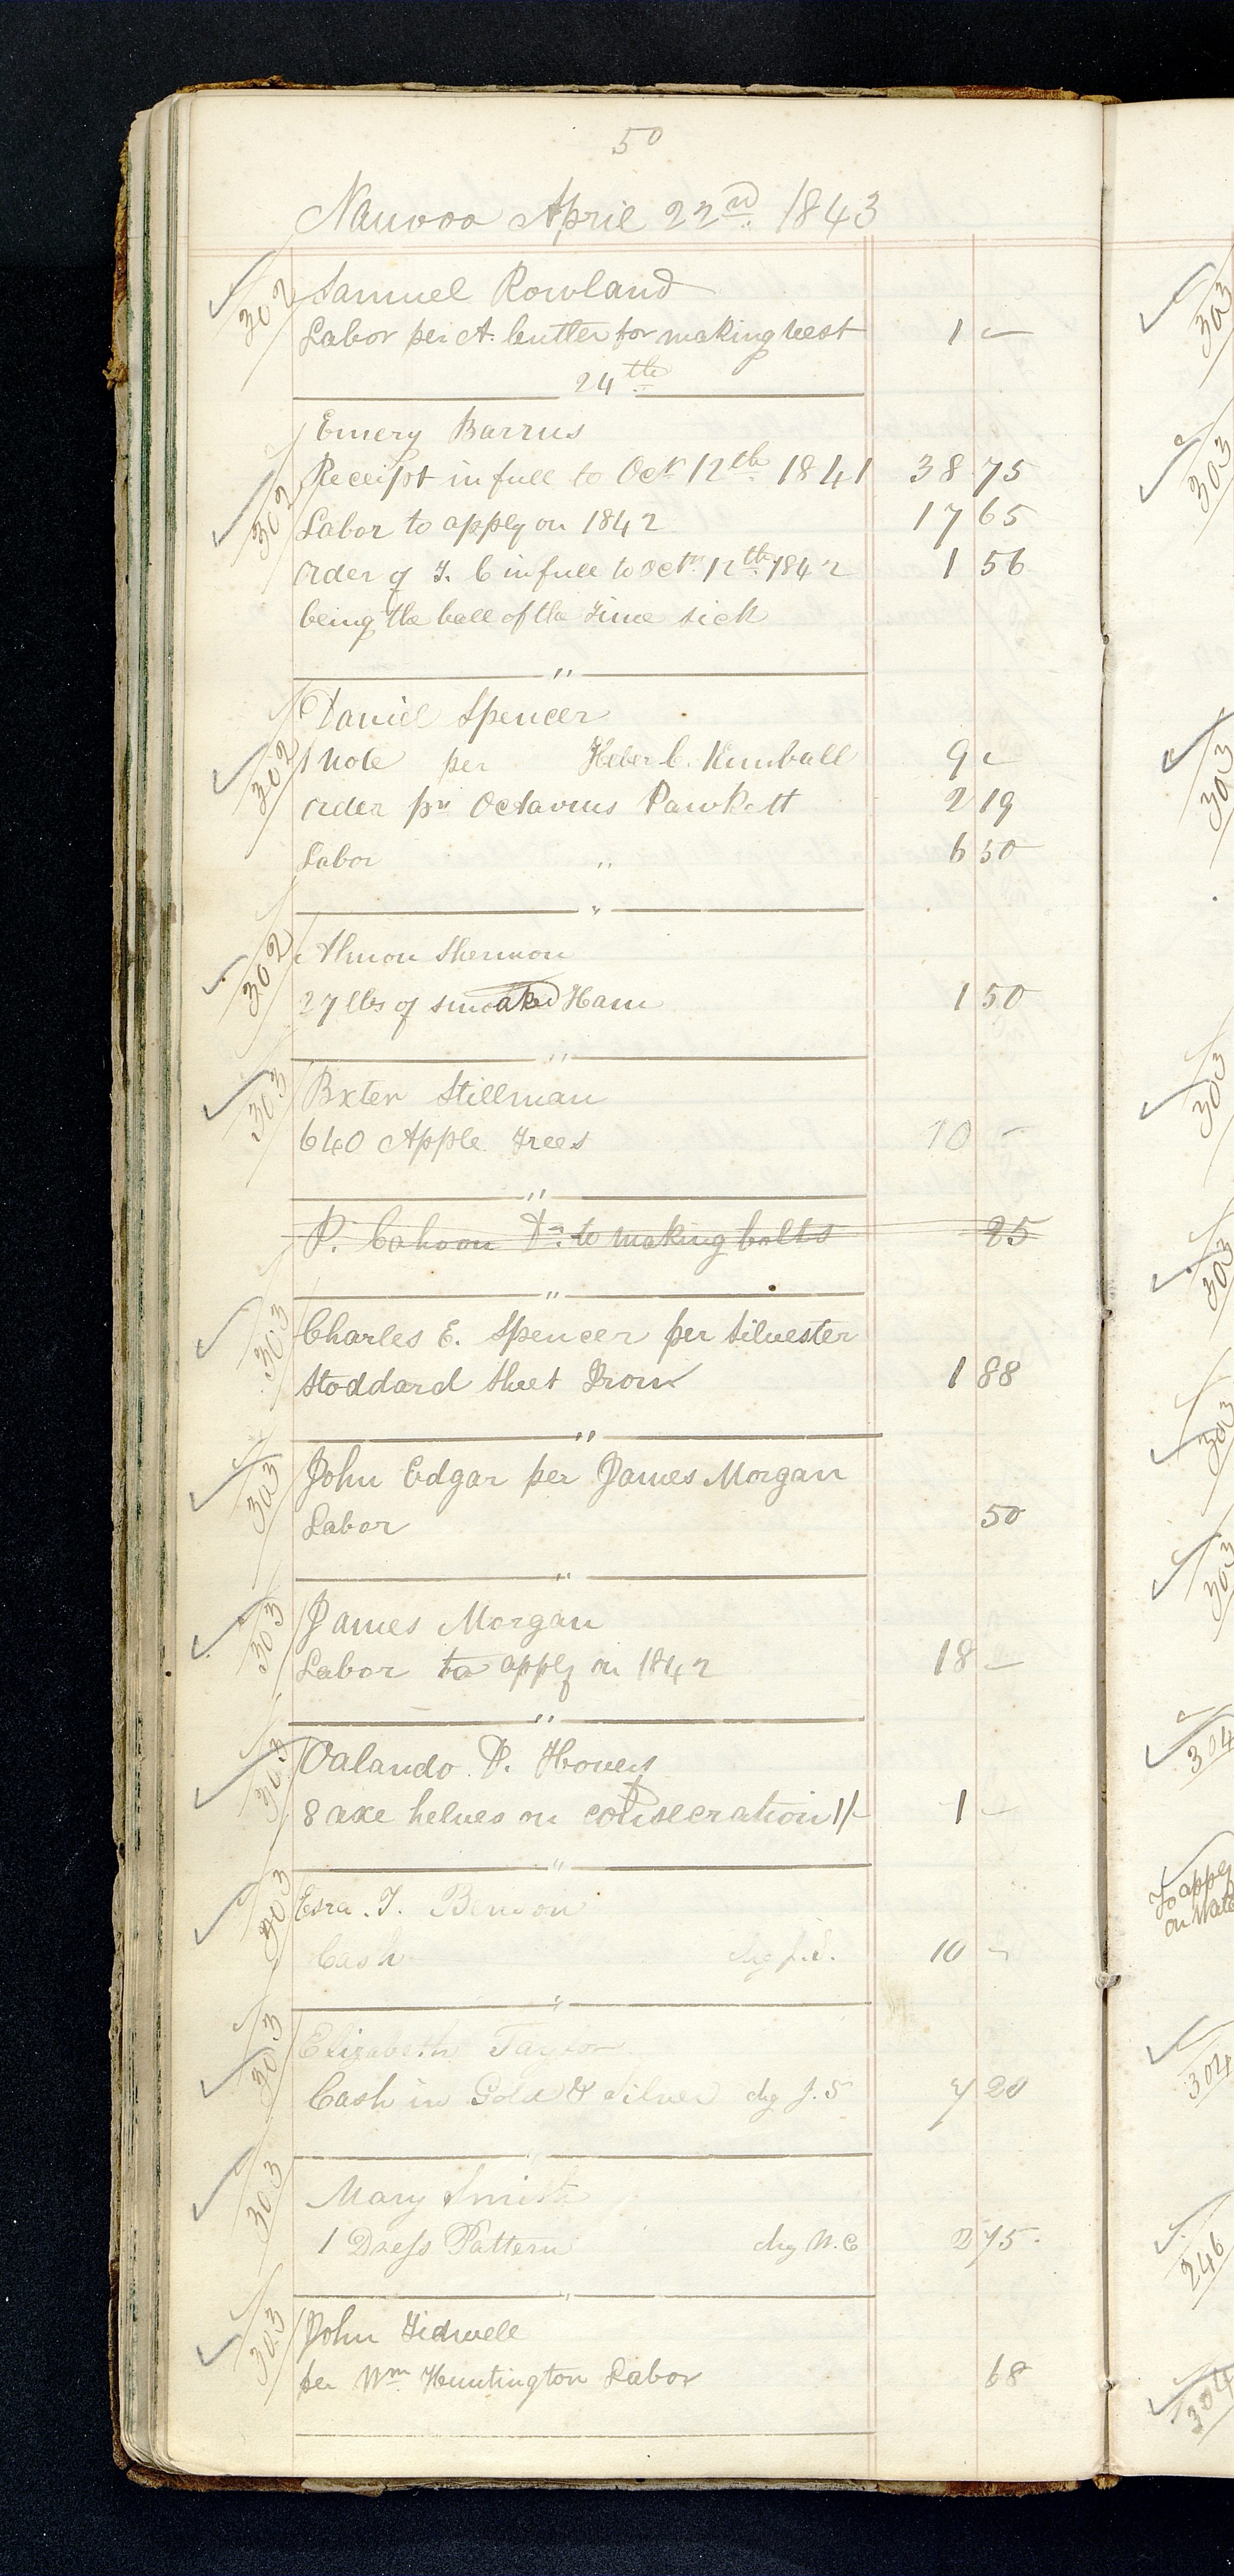 50
Nauvoo April 22nd. 1843
302 Samuel Rowland
Labor per A. Cutler for making vest 1 –
24th
Emery Barrus
Receipt in full to Oct 12th. 1841 38 75
302 Labor to apply on 1842 17 65
order of T. C in full to Octr. 12th. 1842 1 56
being the ball of the time sick
"
Daniel Spencer
302 1 Note per Heber C. Kimball 9 –
order pr Octavius Pawkett 2 19
Labor " 6 50
"
302 Almon Shermon
27 lbs of smoaked Ham 1 50
"
303 Bxter Stillman
640 Apple Trees 10 –
"
P. Cahoon Dr. to making bolts 25
"
303 Charles E. Spencer per Silvester
Stoddard Sheet Iron 1 88
"
303 John Edgar per James Morgan
Labor 50
"
303 James Morgan
Labor to apply on 1842 18 –
"
303 Oalando D. Hovey
8 axe helves on consecration 1/- 1 –
"
303 Esra. T. Benson
Cash chg J.S. 10 –
"
303 Elizabeth Taylor
Cash in Gold & Silver chg J. S 7 20
"
303 Mary Smith
1 Dress Pattern chg W. C 2 75
"
303 John Tidwell
per Wm. Huntington Labor 68
303
303
303
303
303
303
303
304
To apply
on
304
246
304